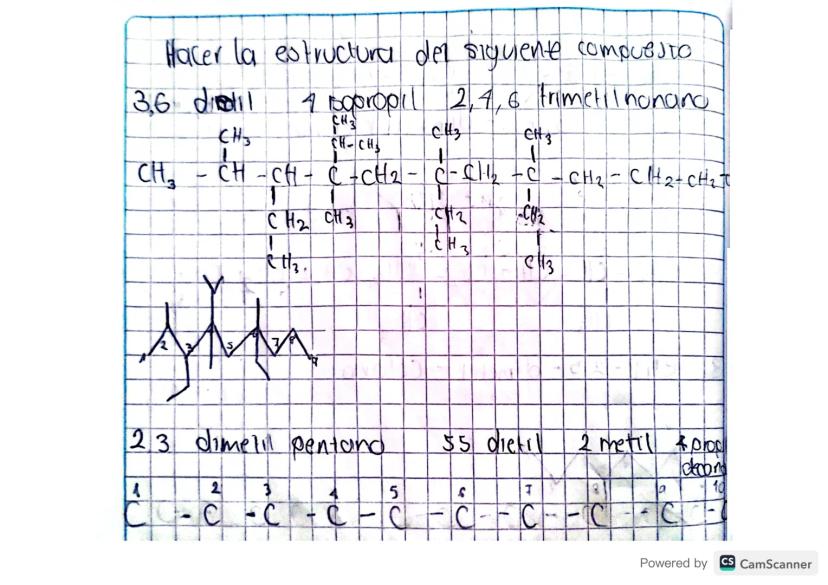 Hacer la estructura del siguiente compuesto
3,6 dietil 4 isopropil 2,4,6 trimetilnonano
CH3
CH3 CH-CH3 CH3 CH3
CH3 - CH - CH - C - CH2 - C - CH2 - C - CH2 - CH2 - CH2
CH2 CH3 CH2 CH2
CH3 CH3 CH3
2 3 5 7 8
2 3 dimetil pentano 55 dietil 2 metil 4 prop
decan
1 2 3 4 5 6 7 8 9 10
C - C - C - C - C - C - C - C - C -
Powered by CS CamScanner